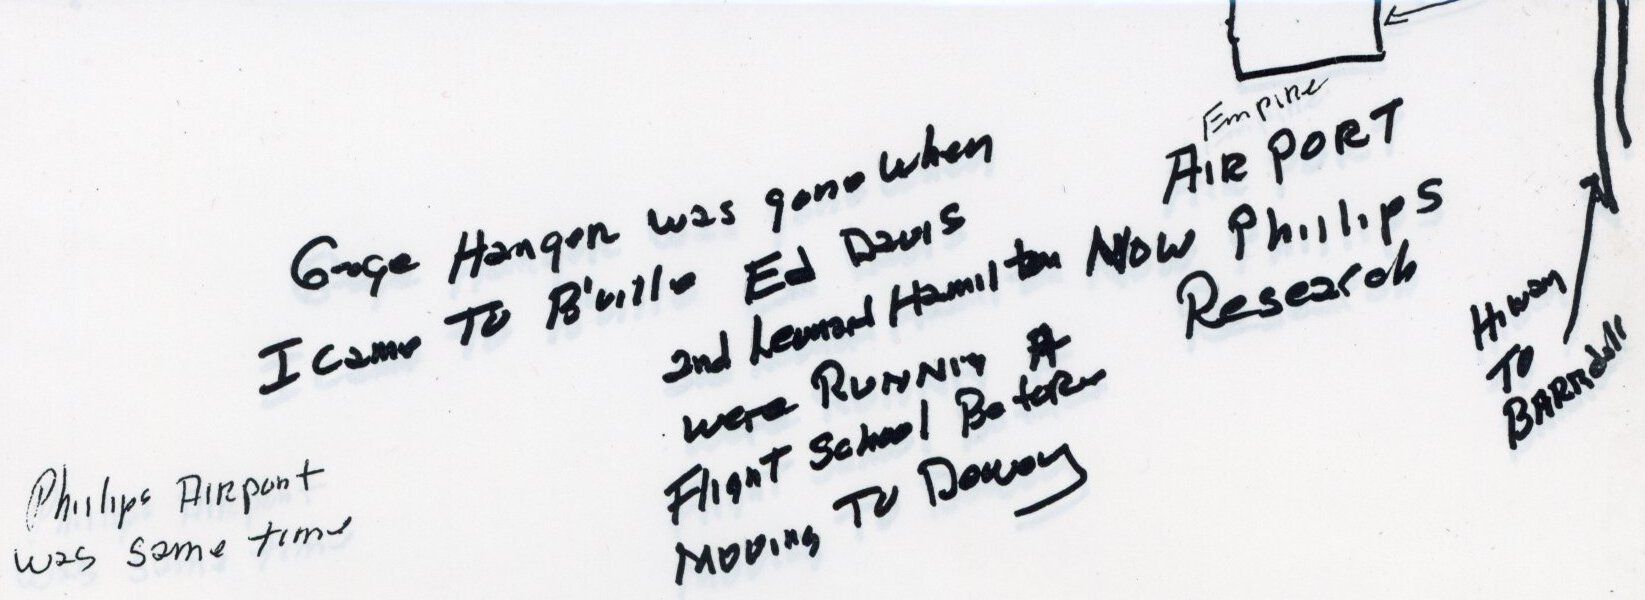 Empire
AIRPORT
Now Phillips
Research
Hiway
TO
BARNdall
Hangar was gone when
I came To B'ville Ed Davis
and Leonard Hamilton
were RUNNIN A
Flight School Before
Moving To Dewey
Phillips AIRport
was same time